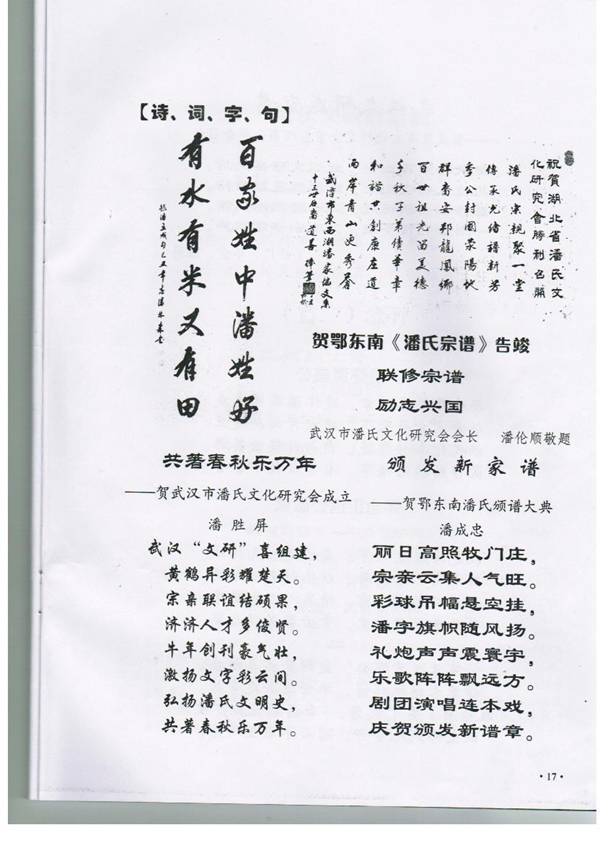 【诗、词、字、句】
百家姓中潘姓好
有水有米又有田
祝贺湖北省潘氏文
化研究会胜利召开
潘氏宗亲聚一堂
传承先绪谱新芳
季公封国荥阳地
群裔安邦龙凤乡
百世祖先留美德
千秋子弟续华章
和谐共创康庄道
两岸青山更秀春
贺鄂东南《潘氏宗谱》告竣
联修宗谱
励志兴国
武汉市潘氏文化研究会会长 潘伦顺敬题
共著春秋乐万年
——贺武汉市潘氏文化研究会成立
潘胜屏
武汉“文研”喜组建，
黄鹤异彩耀楚天。
宗亲联谊结硕果，
济济人才多俊贤。
牛年创刊豪气壮，
激扬文字彩云间。
弘扬潘氏文明史，
共著春秋乐万年。
颁发新家谱
——贺鄂东南潘氏颁谱大典
潘成忠
丽日高照牧门庄，
宗亲云集人气旺。
彩球吊幅悬空挂，
潘字旗帜随风扬。
礼炮声声震寰宇，
乐歌阵阵飘远方。
剧团演唱连本戏，
庆贺颁发新谱章。
·17·